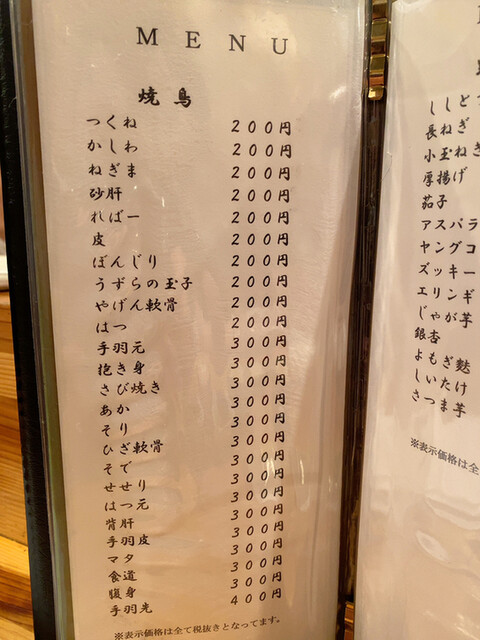 MENU
焼鳥
つくね 200円
かしわ 200円
ねぎま 200円
砂肝 200円
ればー 200円
皮 200円
ぼんじり 200円
うずらの玉子 200円
やげん軟骨 200円
はつ 200円
手羽元 300円
抱き身 300円
さび焼き 300円
あか 300円
そり 300円
ひざ軟骨 300円
そで 300円
せせり 300円
はつ元 300円
背肝 300円
手羽皮 300円
マタ 300円
食道 300円
腹身 300円
手羽先 400円
※表示価格は全て税抜きとなってます。
ししと
長ねぎ
小玉ねぎ
厚揚げ
茄子
アスパラ
ヤングコ
ズッキー
エリンギ
じゃが芋
銀杏
よもぎ麩
しいたけ
さつま芋
※表示価格は全